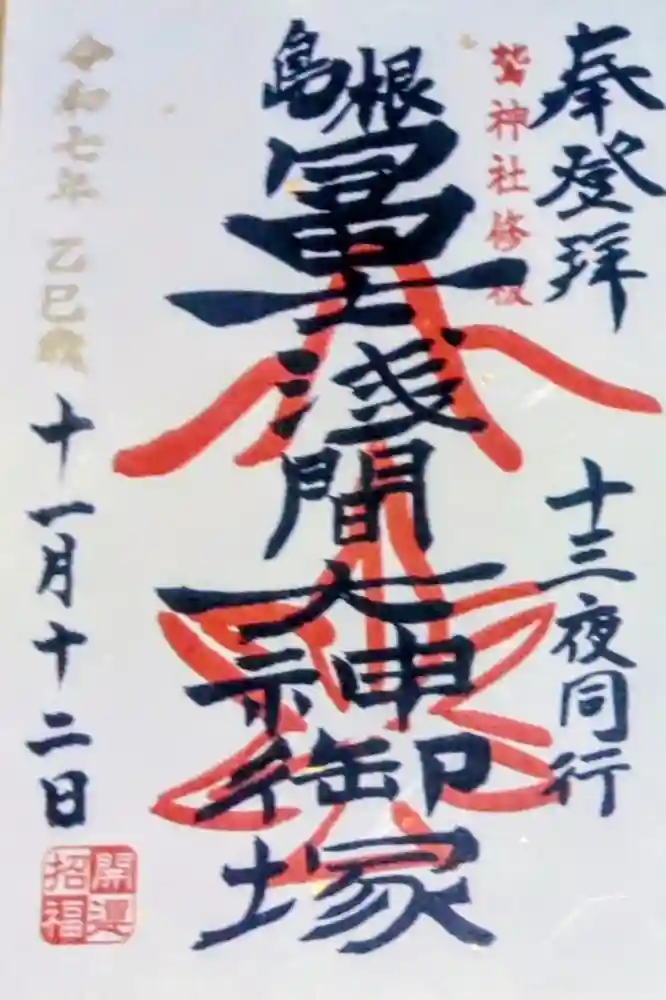 奉登拝
十三夜同行
鷲神社修
島根
冨士浅間大神御塚
令和七年 乙巳歳
十一月十二日
開運
招福